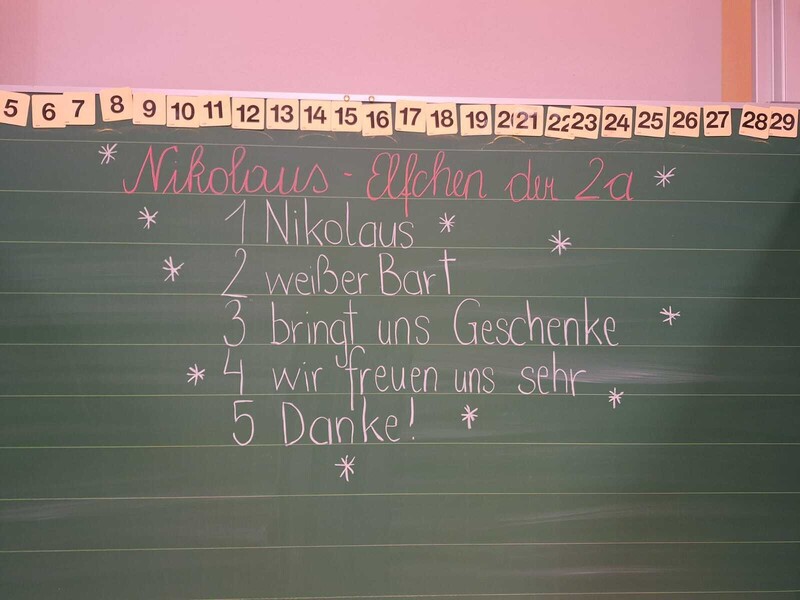 5 6 7 8 9 10 11 12 13 14 15 16 17 18 19 20 21 22 23 24 25 26 27 28 29
Nikolaus - Elfchen der 2a
1 Nikolaus
2 weißer Bart
3 bringt uns Geschenke
4 wir freuen uns sehr
5 Danke!